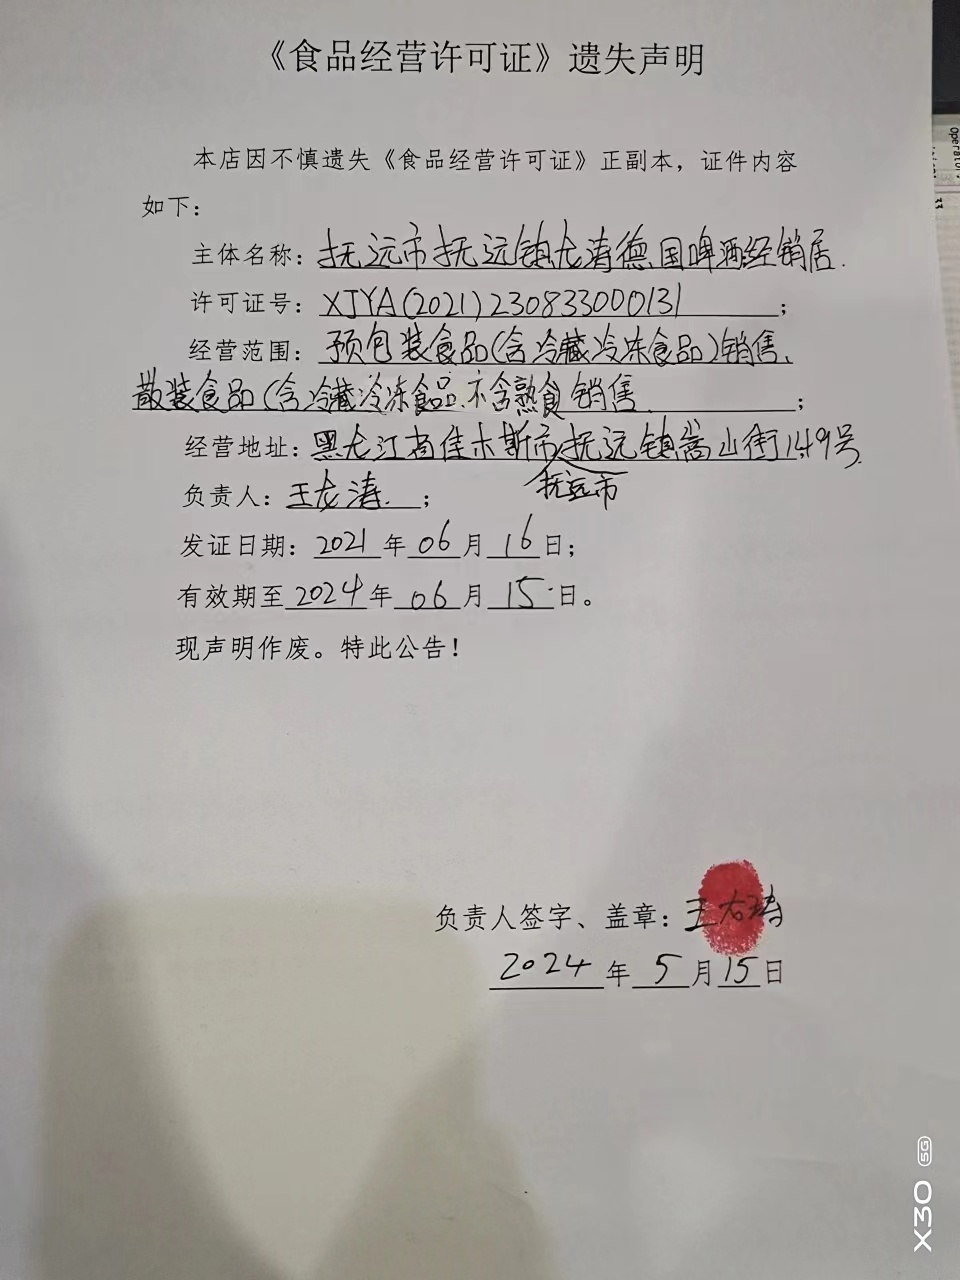 《食品经营许可证》遗失声明
本店因不慎遗失《食品经营许可证》正副本，证件内容
如下：
主体名称：抚远市抚远镇龙涛德国啤酒经销店.
许可证号：XJYA(2021)230833000131；
经营范围：预包装食品(含冷藏冷冻食品)销售、
散装食品(含冷藏冷冻食品、不含熟食 销售.；
经营地址：黑龙江省佳木斯市抚远镇嵩山街149号
抚远市
负责人：王龙涛.；
发证日期：2021年06月16日；
有效期至2024年06月15日。
现声明作废。特此公告！
负责人签字、盖章：王龙涛
2024年5月15日
X30 5G